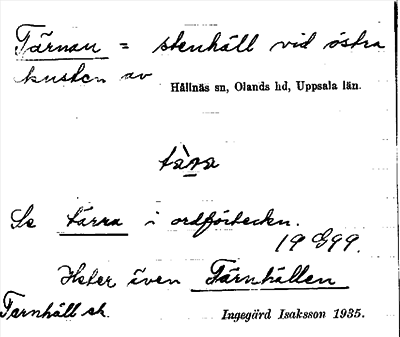 Tärnan = stenhäll vid östra
kusten av Hållnäs sn, Olands hd, Uppsala län.
tära
Se tärna i ordförteckn.
19 G 99.
Heter även Tärnhällen
Tarnhäll sk. Ingegärd Isaksson 1935.